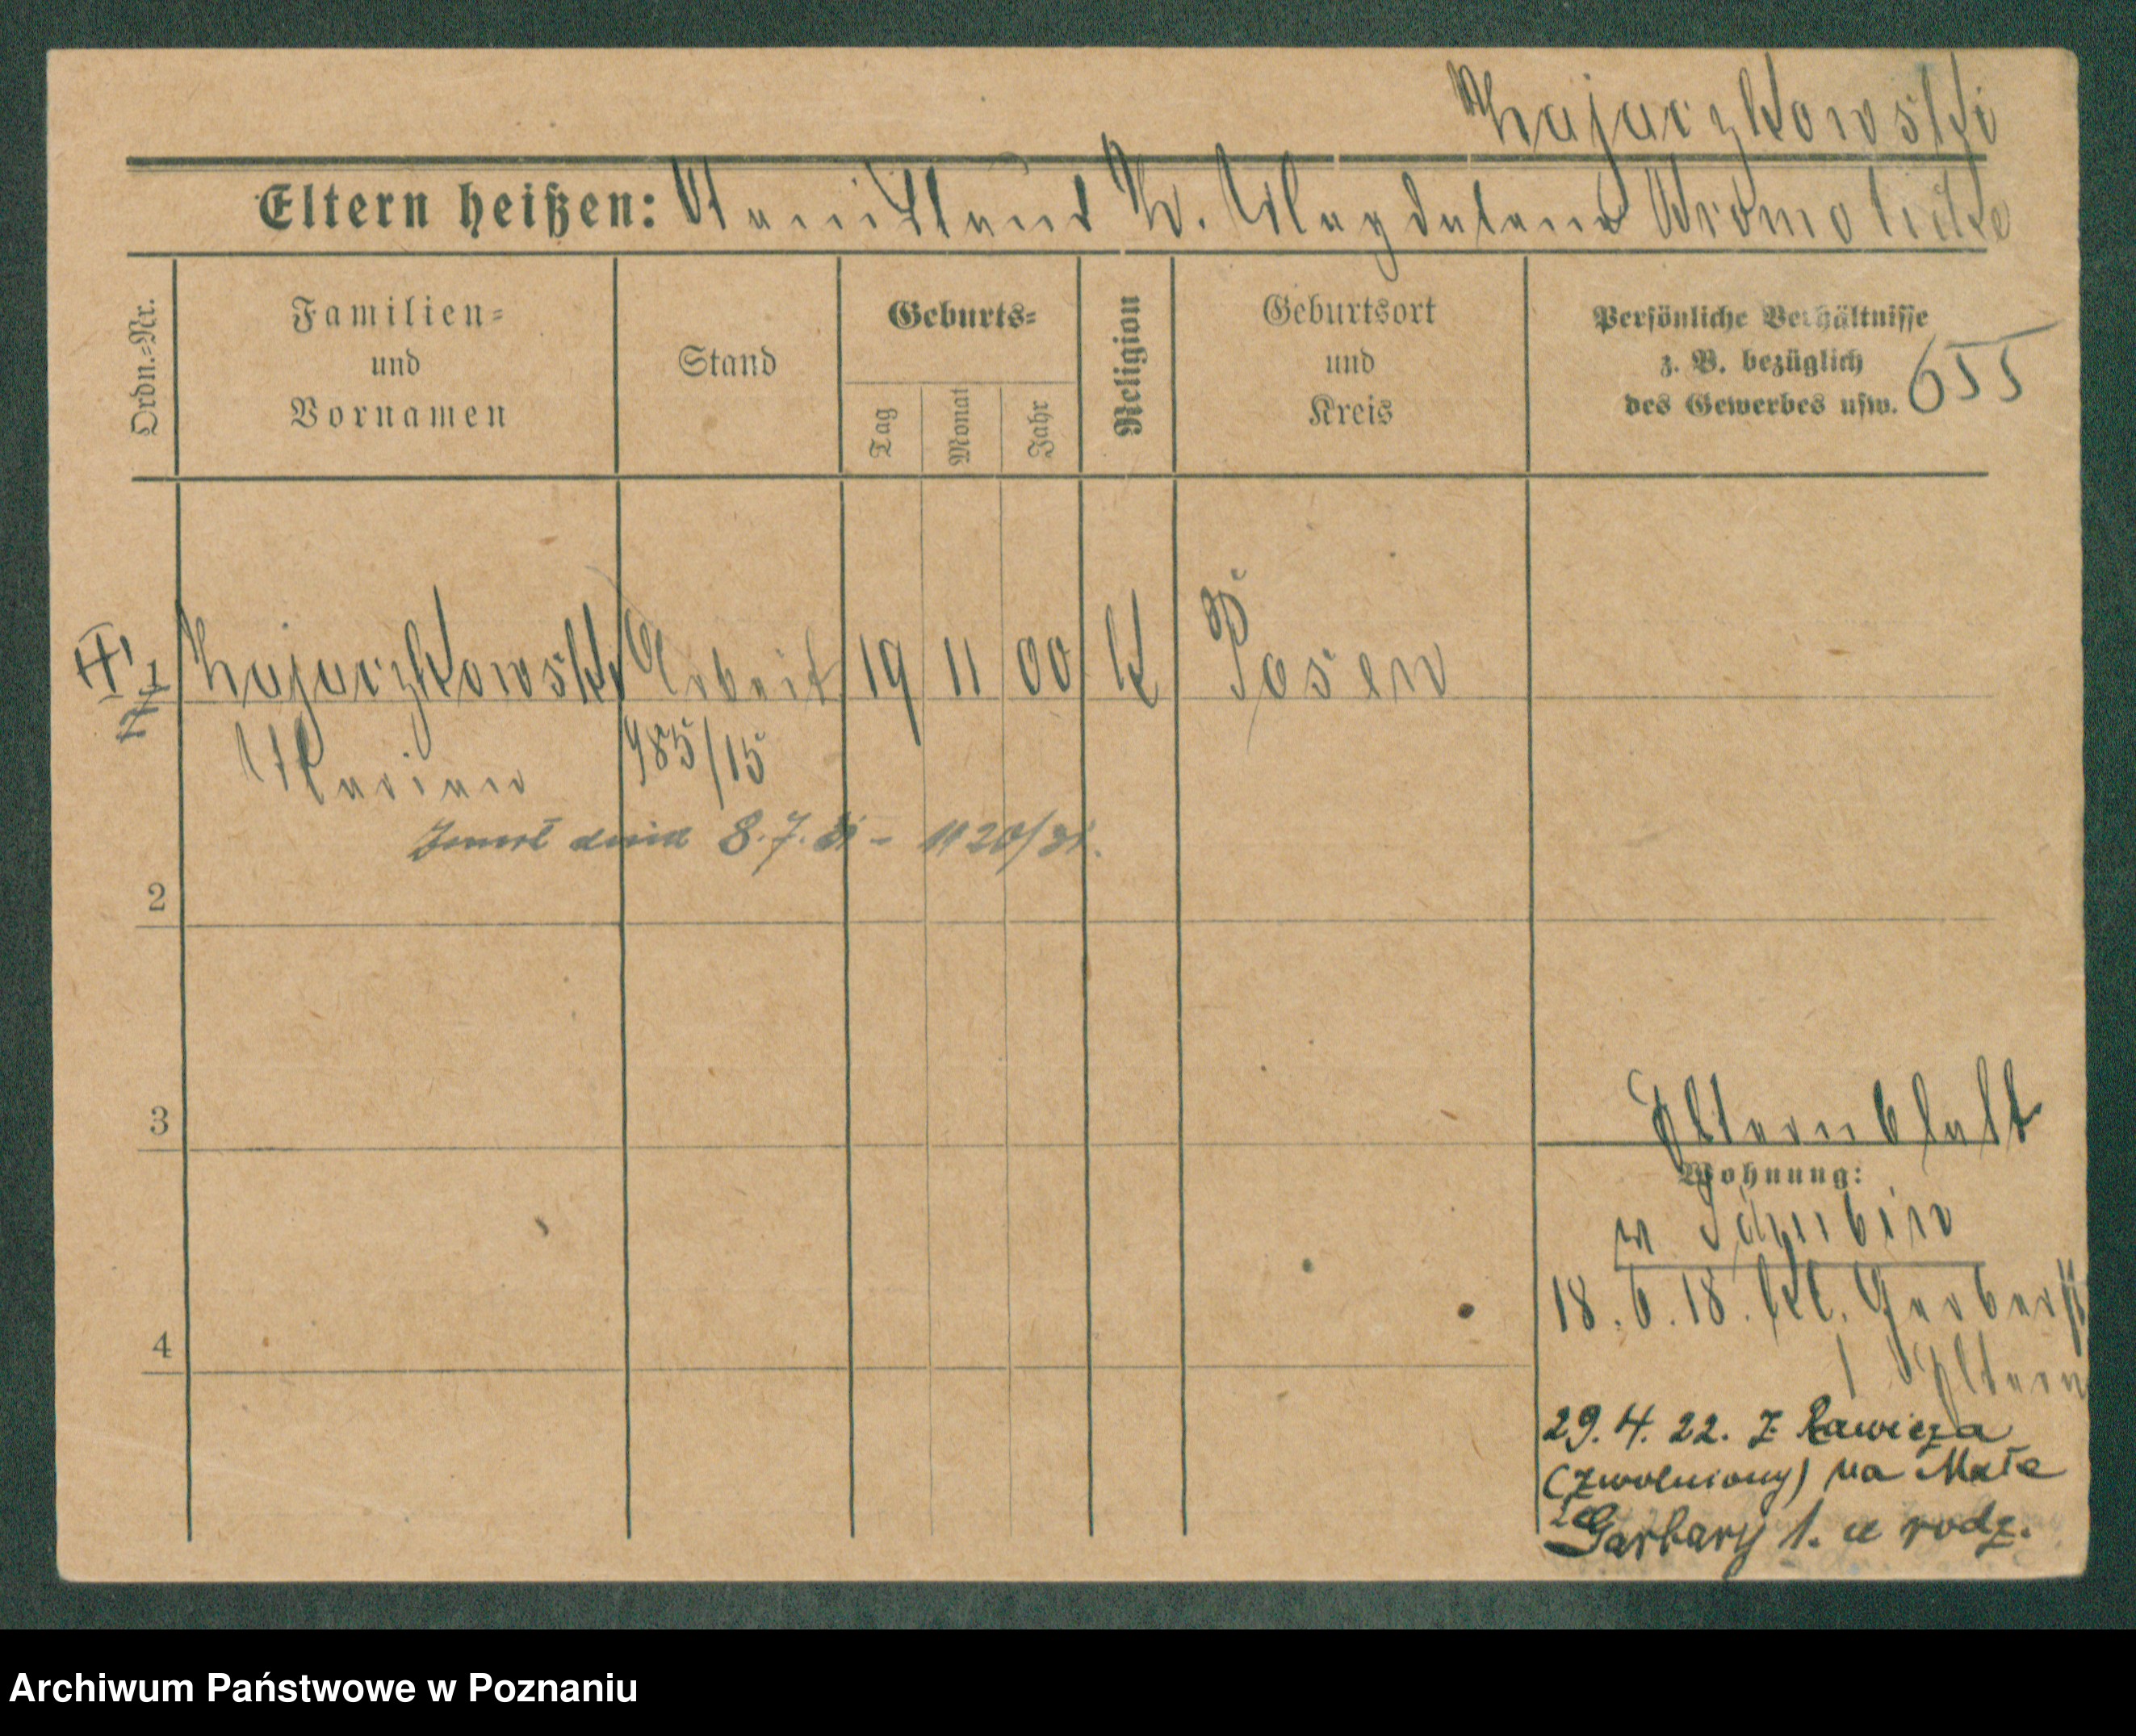 Kajaczkowski
Eltern heißen: Stanislaus K. Magdalena
Ordn.-Nr.
Familien-
und
Vornamen
Stand
Geburts-
Tag
Monat
Jahr
Religion
Geburtsort
und
Kreis
Persönliche Verhältnisse
z. B. bezüglich
des Gewerbes usw.
655
Kajaczkowski Arbeit 19 11 00 K Posen
Marian 485/15
Zmarł dnia 8.7.31 - 1120/31.
2
3
4
Elternblatt
Wohnung:
Schubin
18.6.18. Kl. Gerberst
1 Eltern
29.4.22. z Rawicza
(zwolniony) na Małe
Garbary 1. u rodz.
Archiwum Państwowe w Poznaniu